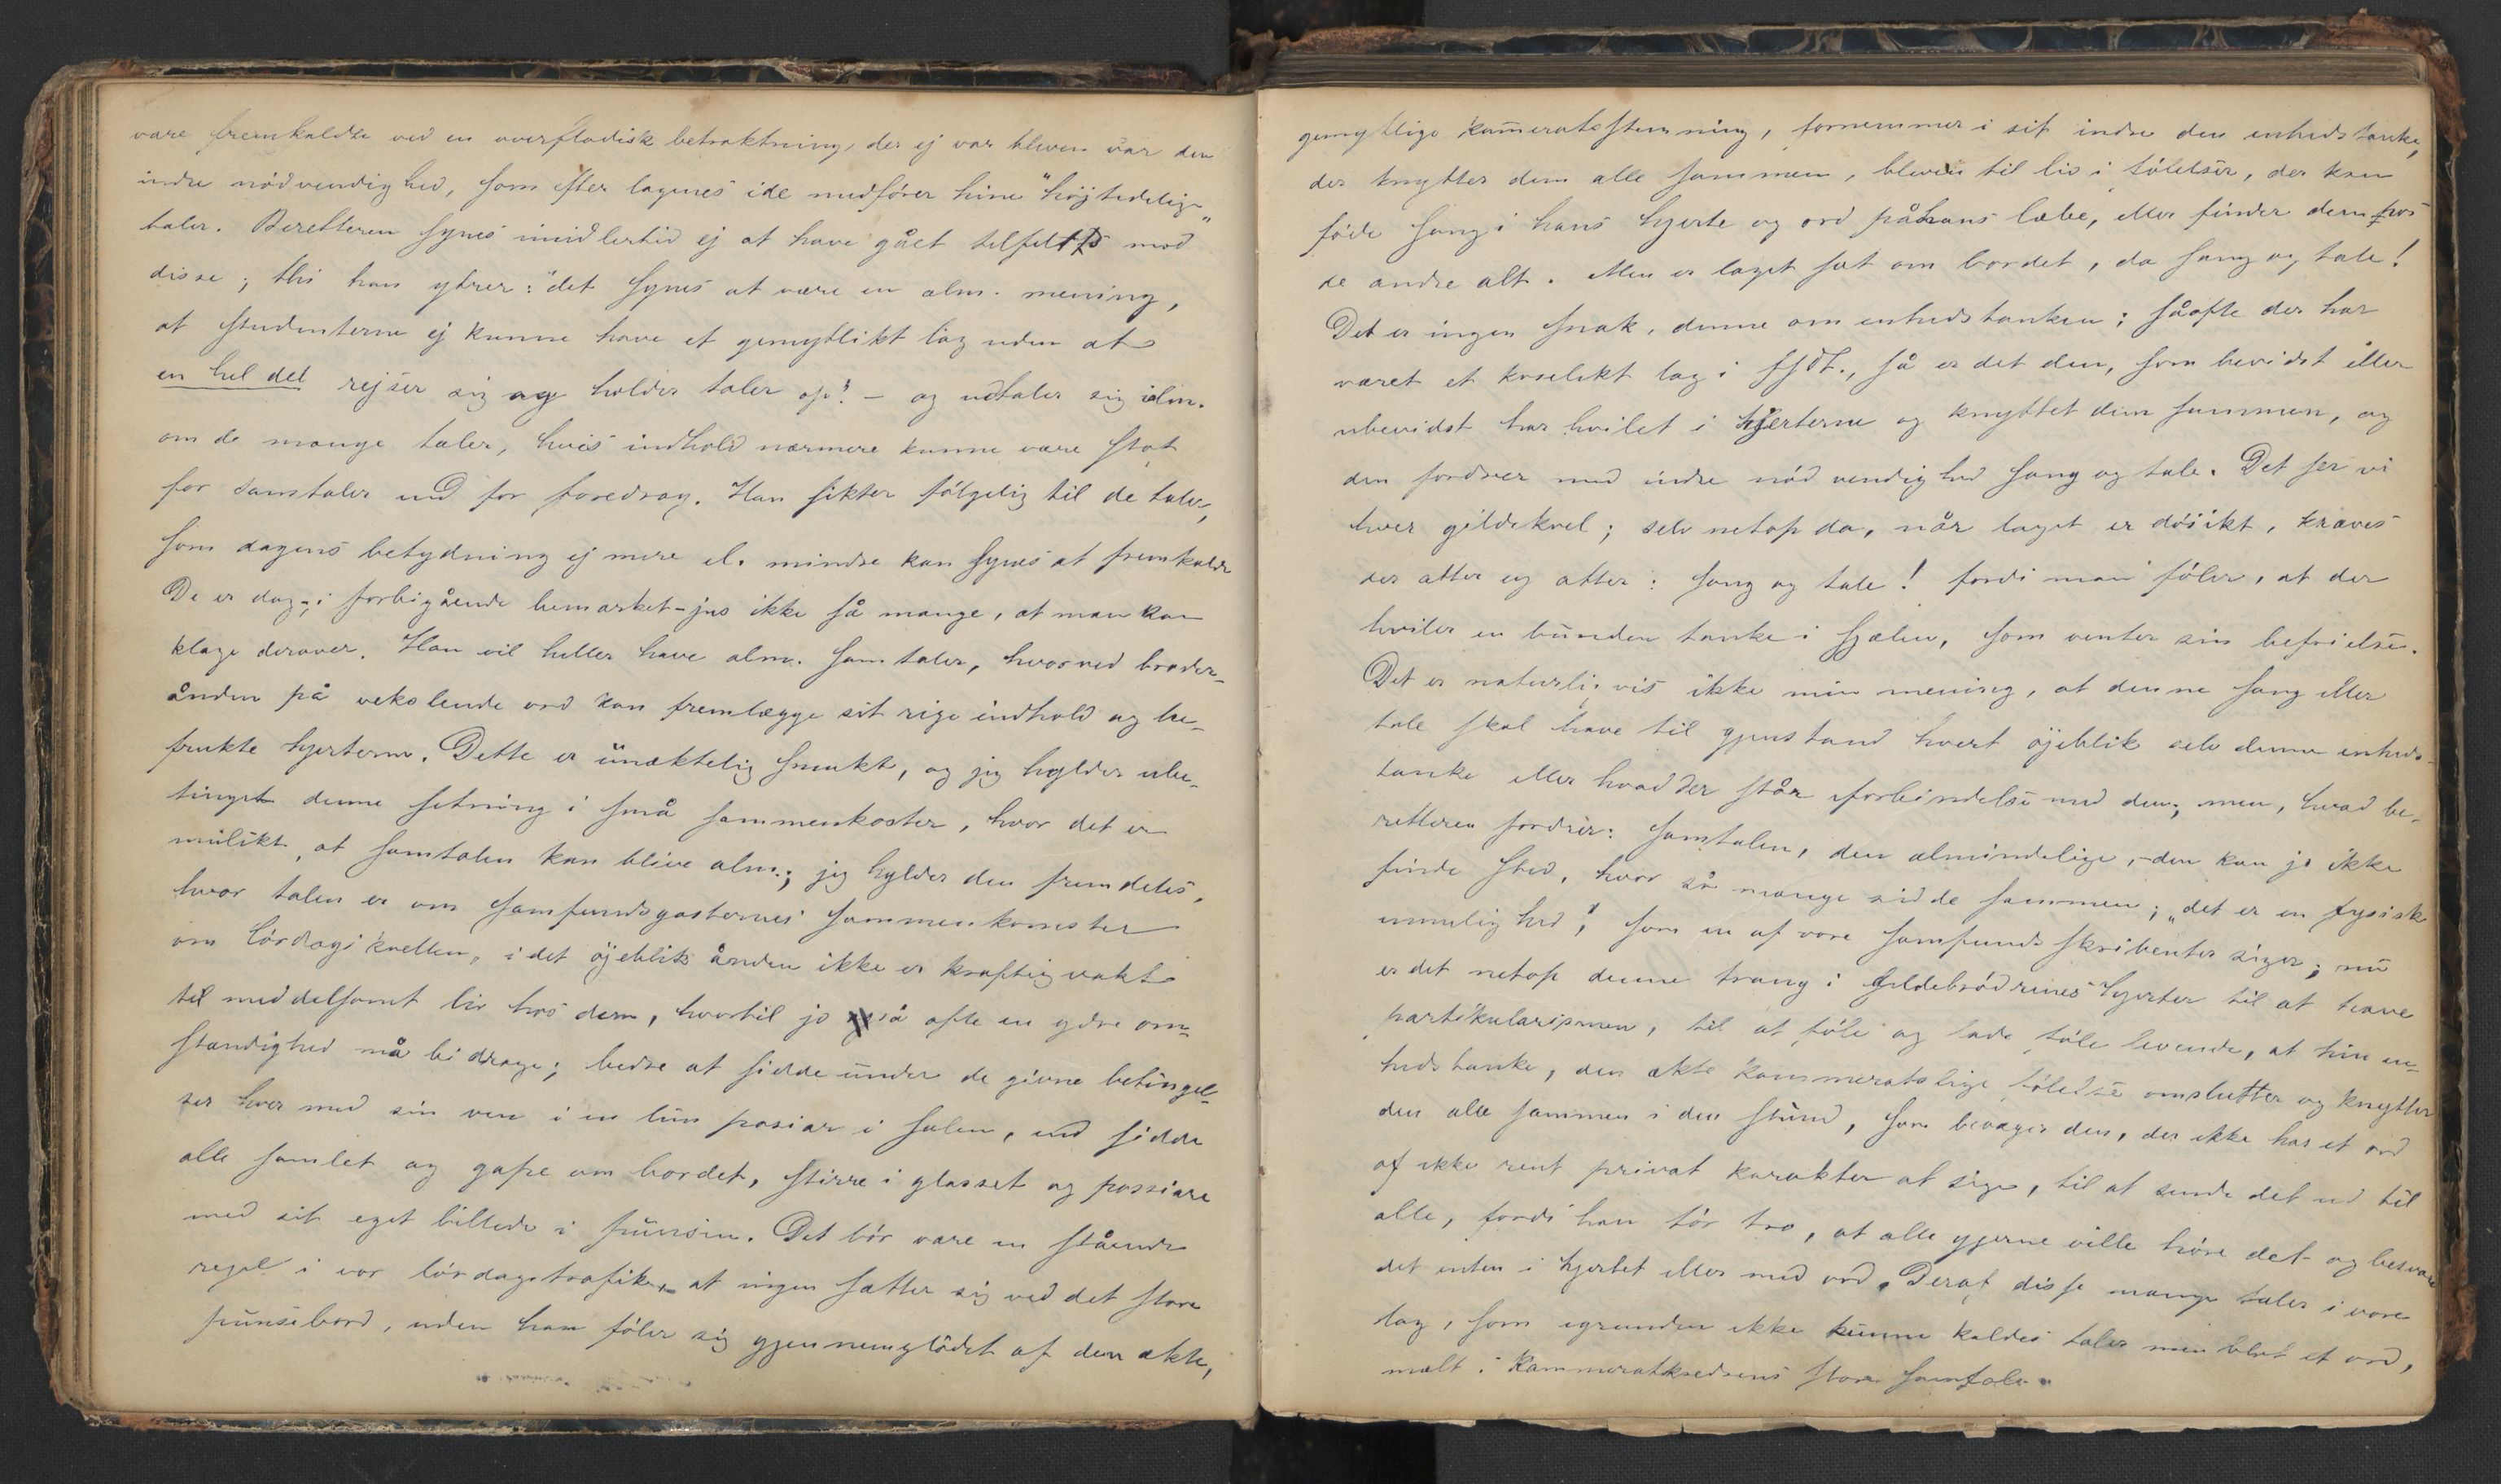 være fremkaldte ved en overfladisk betraktning, der ej var bleven var den
indre nödvendighed, som efter lagenes ide medförer hine "höjtidelige"
taler. Beretteren synes imidlertid ej at have gået tilfelts mod
disse; thi han ytrer: "det synes at være en alm. mening,
at studenterne ej kunne have et gemytlikt lag uden at
en hel del rejser sig og holder taler op". – og udtaler sig
om de mange taler, hvis indhold nærmere kunne være stof
for samtaler end for foredrag. Han sikter fölgelig til de taler,
som dagens betydning ej mere el. mindre kan synes at fremkalde
De er dog – i forbigående bemærket – jus ikke så mange, at man kan
klage derover. Han vil heller have alm. samtaler, hvorved broder-
ånden på vekslende ord kan fremlægge sit rige indhold og be-
frukte hjerterne. Dette er unæktelig smukt, og jeg hylder ube-
tinget denne setning i små sammenkoster, hvor det er
mulikt, at samtalen kan blive alm.; jeg hylder den fremdeles,
hvor talen er om samfundsgasternes sammenkomster
om lördagskvellen, i det öjeblik ånden ikke er kraftig vakt
til meddelsomt liv hos dem, hvortil jo så ofte en ydre om-
stændighed må bidrage; bedre at sidde under de givne betingel-
ser hver med sin ven i en lun pasiar i salen, end sidde
alle samlet og gape om bordet, stirre i glasset og passiare
med sit eget billede i punsen. Det bör være en stående
regel i vor lördagstrafik, at ingen sætter sig ved det store
punsebord, uden han föler sig gjennemglödet af den ækte,
gemytlige kameratsstemning, fornemmer i sit indre den enhedstanke,
der knytter dem alle sammen, bleven til liv i fölelser, der kan
föde sang i hans hjerte og ord på hans læbe, eller finder dem hos
de andre alt. Men er laget sat om bordet, da sang og tale!
Det er ingen snak, denne om enhedstanken; såofte der har
været et koselikt lag i , så er det den, som bevidst eller
ubevidst har hvilet i hjerterne og knyttet dem sammen, og
den fordrer med indre nödvendighed sang og tale. Det ser vi
hver gildekvel; selv netop da, når laget er dösikt, kræves
der atter og atter: sang og tale! fordi man föler, at der
hviler en bunden tanke i sjælen, som venter sin befrielse.
Det er naturligvis ikke min mening, at denne sang eller
tale skal have til gjenstand hvert öjeblik selv denne enheds-
tanke eller hvad der står i forbindelse med den; men, hvad be-
retteren fordrer: samtalen, den almindelige, – den kan jo ikke
finde sted, hvor så mange sidde sammen; „det er en fysisk
umulighed", som en af vore samfunds skribenter siger; nu
er det netop denne trang i gildebrödrenes hjerter til at hæve
partikularismen, til at föle og lade föle levende, at hin en-
hedstanke, den ækte kammeratslige fölelse omslutter og knytter
dem alle sammen i den stund, som bevæger den, der ikke har et ord
af ikke rent privat karakter at sige, til at sende det ud til
alle, fordi han tör tro, at alle gjerne ville höre det og besvare
det enten i hjertet eller med ord. Deraf disse mange taler i vore
lag, som igrunden ikke kunne kaldes taler men blot et ord,
mælt i kammeratkredsens store samtale.